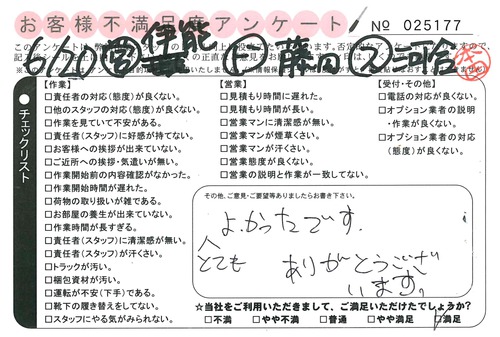 お客様不満足度アンケート
№ 025177
チェックリスト
【作業】
□責任者の対応(態度)が良くない。
□他のスタッフの対応(態度)が良くない。
□作業を見ていて不安がある。
□責任者(スタッフ)に好感が持てない。
□お客様への挨拶が出来ていない。
□ご近所への挨拶・気遣いが無い。
□作業開始前の内容確認がなかった。
□作業開始時間が遅れた。
□荷物の取り扱いが雑である。
□お部屋の養生が出来ていない。
□作業時間が長すぎる。
□責任者(スタッフ)に清潔感が無い。
□責任者(スタッフ)が汗くさい。
□トラックが汚い。
□梱包資材が汚い。
□運転が不安(下手)である。
□靴下の履き替えをしてない。
□スタッフにやる気がみられない。
【営業】
□見積もり時間に遅れた。
□見積もり時間が長い。
□営業マンに清潔感が無い。
□営業マンが煙草くさい。
□営業マンが汗くさい。
□営業態度が良くない。
□営業の説明と作業が一致してない。
【受付・その他】
□電話の対応が良くない。
□オプション業者の説明
・作業が良くない。
□オプション業者の対応
(態度)が良くない。
その他、ご意見・ご要望等ありましたらお書き下さい。
よかったです。
とても ありがとうござ
います。
☆当社をご利用いただきまして、ご満足いただけたでしょうか?
□不満 □やや不満 □普通 □やや満足 □満足